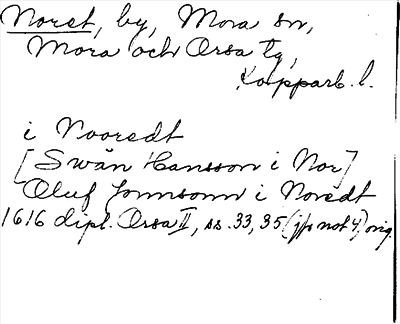 Noret, by, Mora sn,
Mora och Orsa tg,
Kopparb. l.
i Nooredt
[Swän Hansson i Nor]
Oluf Jonnsonn i Noredt
1616 dipl. Orsa II, ss. 33, 35 (jfr not 4) orig.